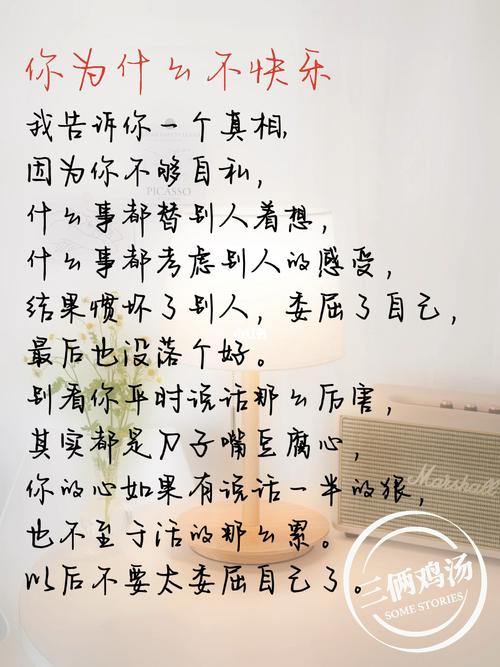 你为什么不快乐
我告诉你一个真相,
因为你不够自私,
PICASSO
什么事都替别人着想,
什么事都考虑别人的感受,
结果惯坏了别人，委屈了自己,
最后也没落个好。
别看你平时说话那么厉害,
其实都是刀子嘴豆腐心,
Marshall
你的心如果有说话一半的狠,
也不至于活的那么累。
以后不要太委屈自己了。
三俩鸡汤
SOME STORIES